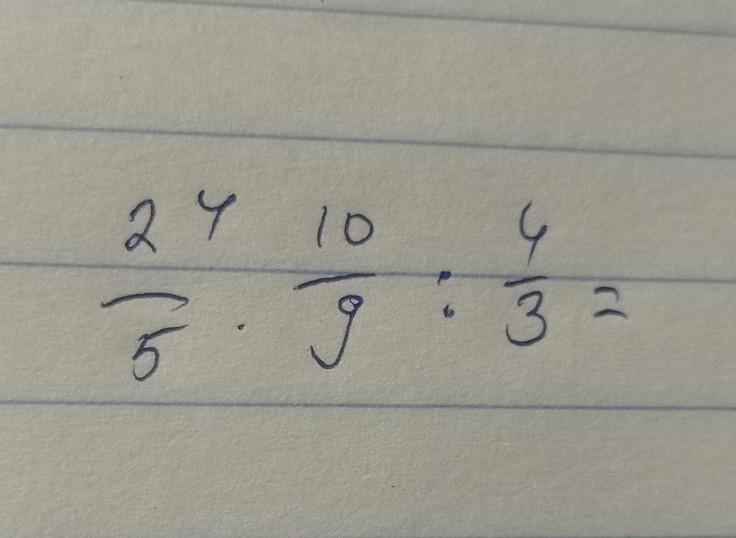 2⁴/5 · 10/9 : 4/3 =